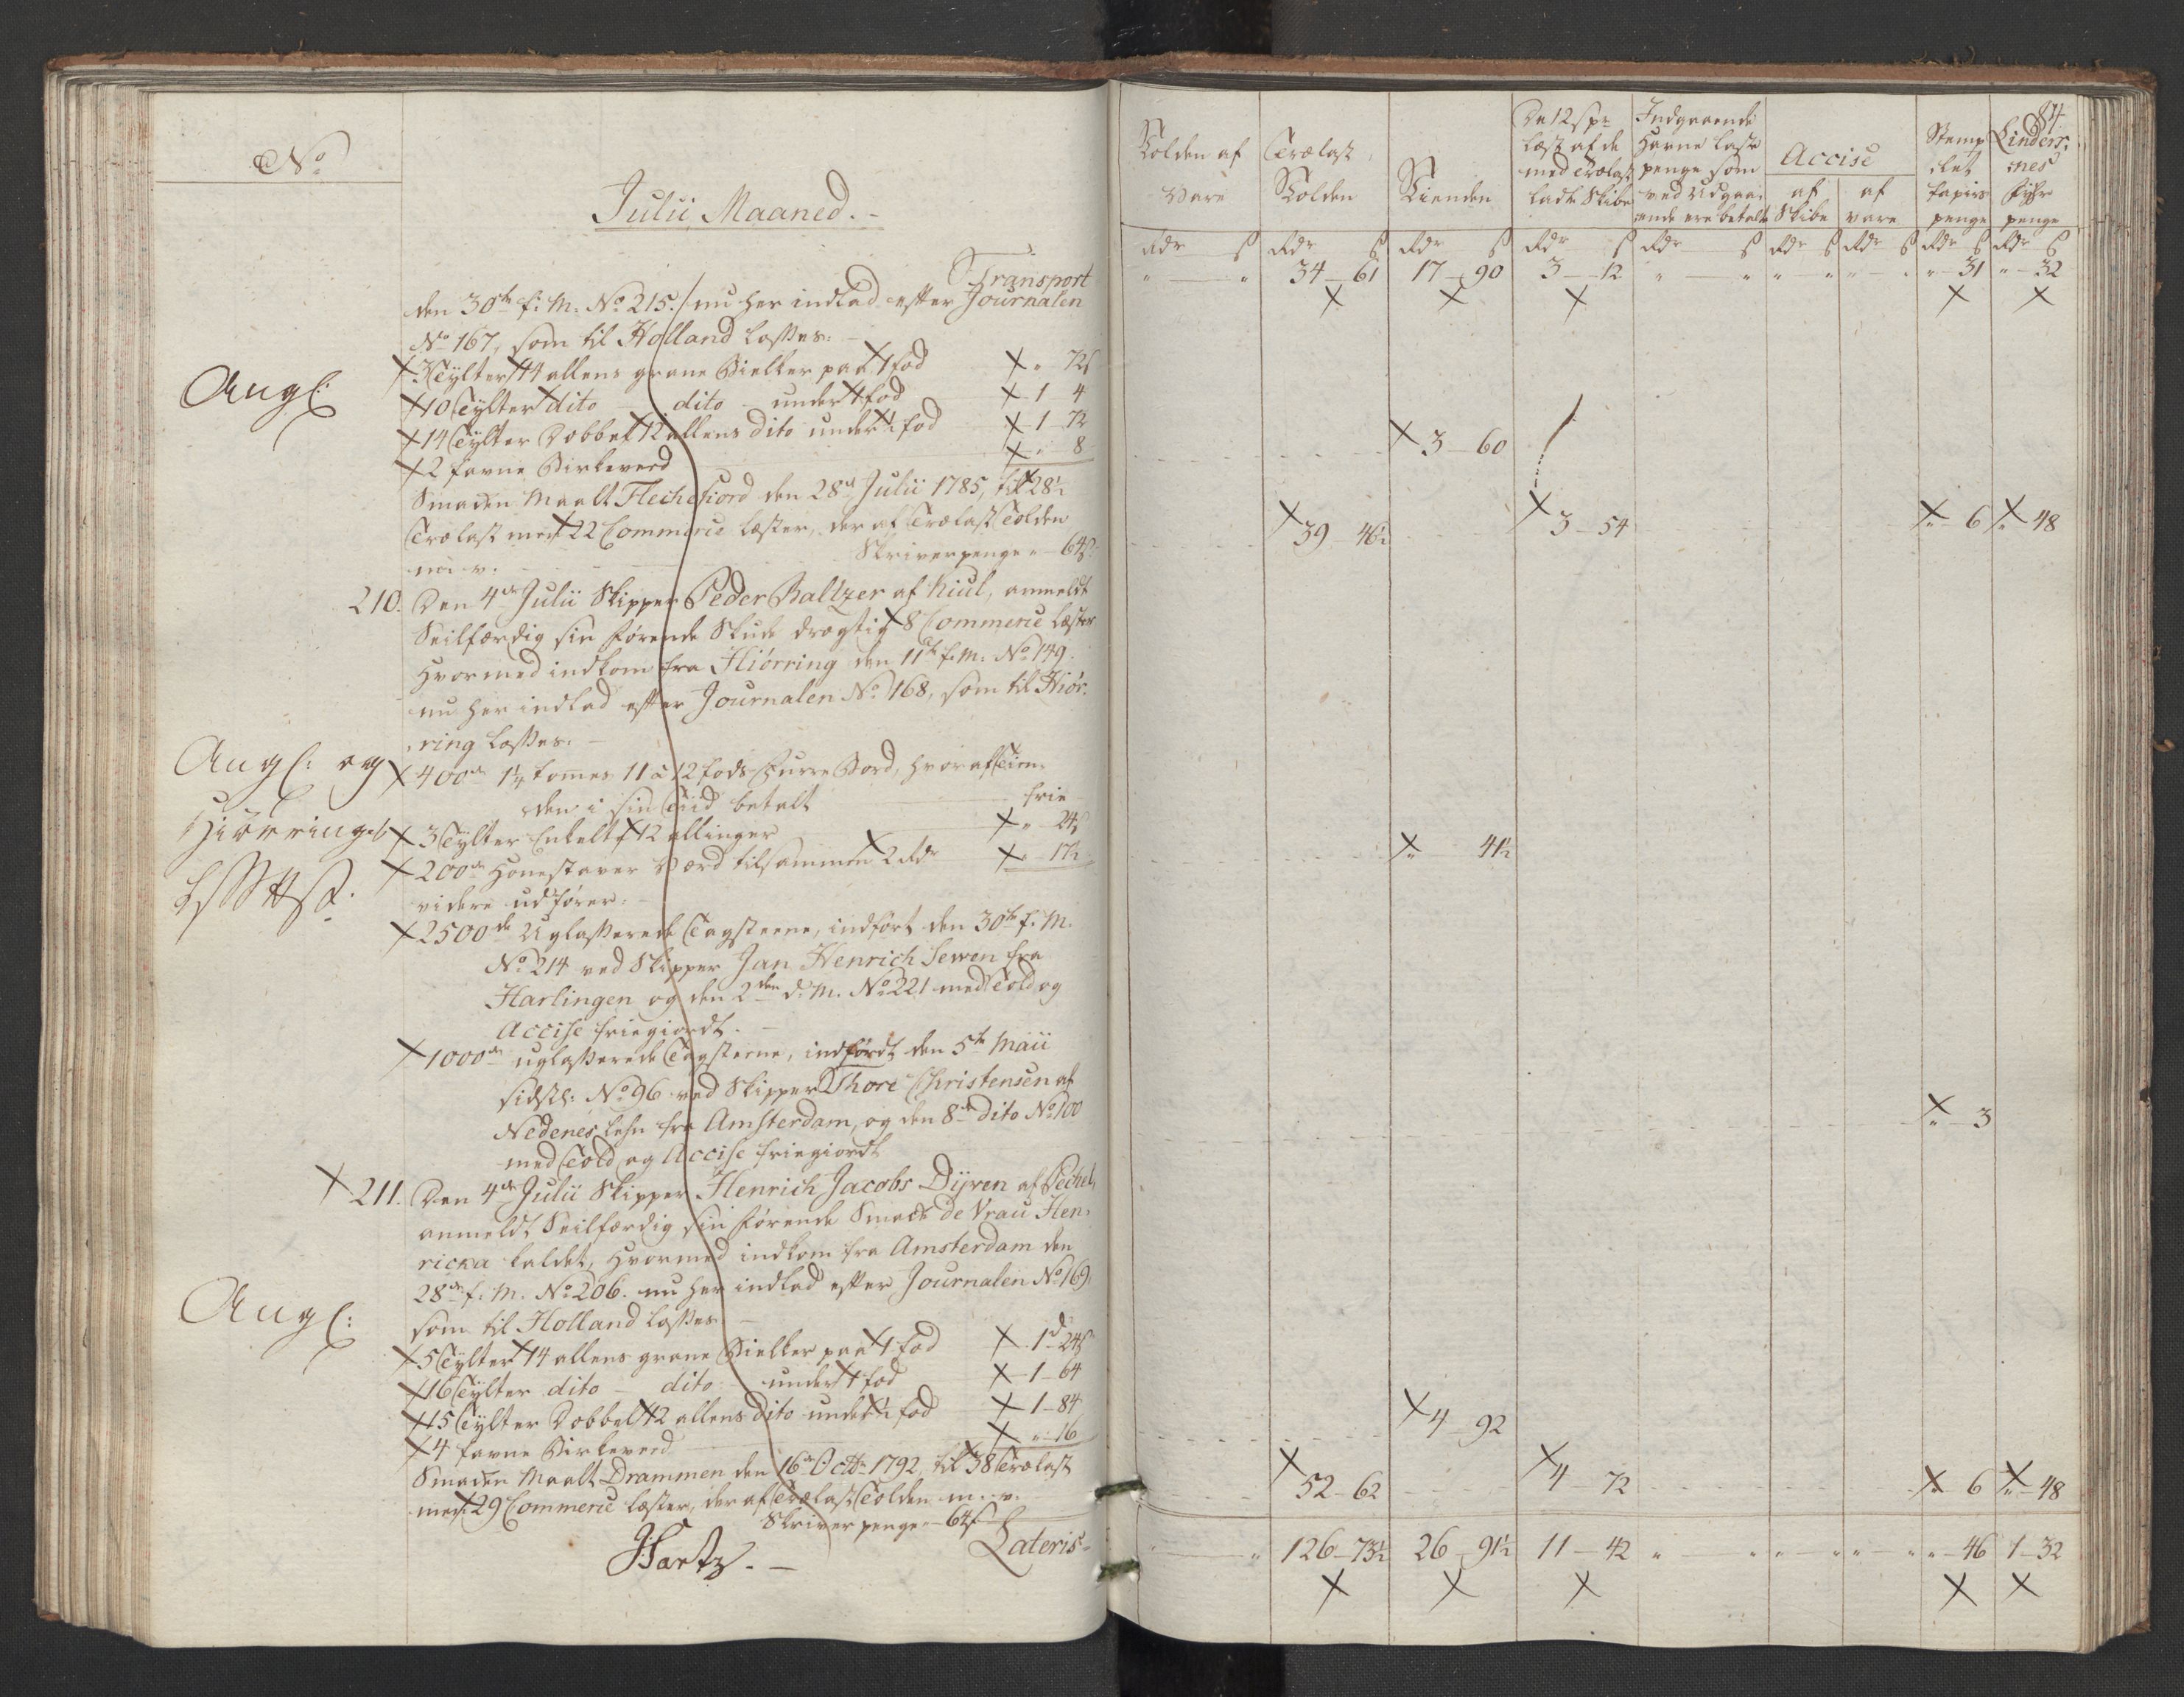 No
Julii Maaned.
Transport
den 30te f: M. No 215. / nu her indlad efter Journalen
No 167, som til Holland losses:
Angl:
3 Tylter 14 allens grane Bielker paa 1 fod " 72 s
10 Tylter dito dito under 1 fod 1 4
14 Tylter Dobbelt 12 allens dito under ½ fod 1 72
2 favne Birkeved " 8
Smaken Maalt Flechefiord den 28de Julii 1785, til 28½
Trælast med 22 Commerce læster, der af Trælast Tolden
m: v. Skriverpenge " 64 s
210. Den 4de Julii Skipper Peder Baltzer af Kiul, anmeldt
Seilfærdig sin førende Skude drægtig 8 Commerce læster
Hvormed indkom fra Hiørring den 11te f. M. No 149.
nu her indlad efter Journalen No 168, som til Hiør-
ring losses.
Angl: og
Hiörring
400de 1¼ tommes 11 a 12 fods furre Bord, hvoraf Tien-
den i sin Tiid betalt frie
3 Tylter Enkelt 12 allinger " 24 s
200de Honestaver Værd tilsammen 2 Rdr " 17½
videre udfører:
2500de Uglasserede Tagsteene, indført den 30te f. M.
No 214 ved Skipper Jan Henrich Sewen fra
Harlingen og den 2den d. M. No 221 med Told og
Accise friegiordt.
1000de uglasserede Tagsteene, indfördt den 5te Maii
sidstl: No 96 ved Skipper Thore Christensen af
Nedenes Lehn fra Amsterdam, og den 8de dito No 100
med Told og Accise friegiordt
211. Den 4de Julii Skipper Henrich Jacobs Dÿren af Pechel,
anmeldt Seilfærdig sin førende Smak de Vrau Hen-
ricka kaldet, Hvormed indkom fra Amsterdam den
28de f. M. No 206. nu her indlad efter Journalen No 169,
som til Holland losses
Angl:
5 Tylter 14 allens grane Bielker paa 1 fod 1 d 24 s
16 Tylter dito dito under 1 fod 1 - 64
15 Tylter Dobbel 12 allens dito under ½ fod 1 - 84
4 favne Birkeved " 16
Smaken Maalt Drammen den 16de Octbr 1792, til 38 Trælast
med 29 Commerce læster, der af Trælast Tolden m. v.
Skriver penge " 64 s
Lateris
Hartz.
84
Tolden af Vare
Trælast Tolden
Tienden
De 12 s pr læst af de med Trælast ladte Skibe
Indgaaende Havne Laste penge som ved Udgaaende ere betalt
Accise
af Skibe
af vare
Stemplet Papirs penge
Lindersnes Fyhr penge
Rdr s Rdr s Rdr s Rdr s Rdr s Rdr s Rdr s Rdr s Rdr s
" " 34 - 61 17 - 90 3 - 12 " " " " " " " - 31 " - 32
3 - 60
39 - 46½ 3 - 54 " - 6 " - 48
" 41½
" - 3
4 - 92
52 - 62 4 - 72 " 6 " - 48
" " 126 - 73½ 26 - 91½ 11 - 42 " " " " " " " - 46 1 - 32